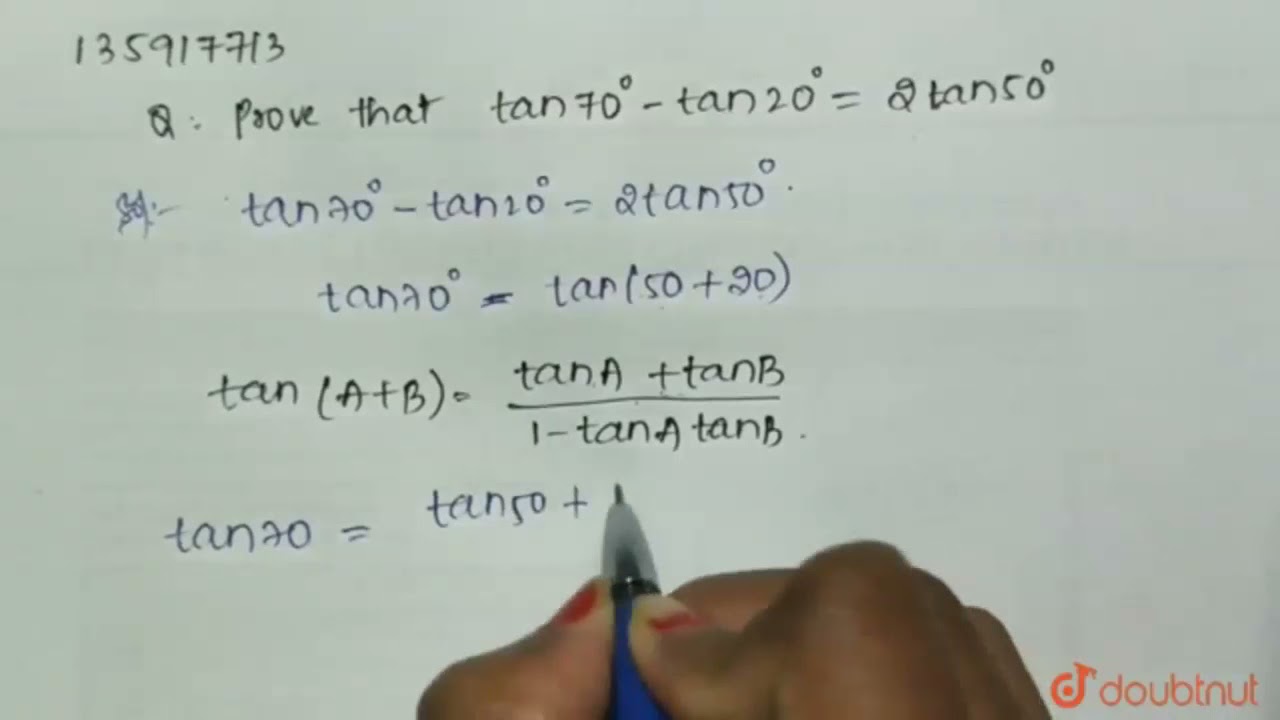 135917713
Q: Prove that tan70° - tan20° = 2tan50°
Sol:- tan70° - tan20° = 2tan50°.
tan70° = tan(50+20)
tan (A+B) = tanA + tanB / 1 - tanA tanB.
tan70 = tan50 +
doubtnut